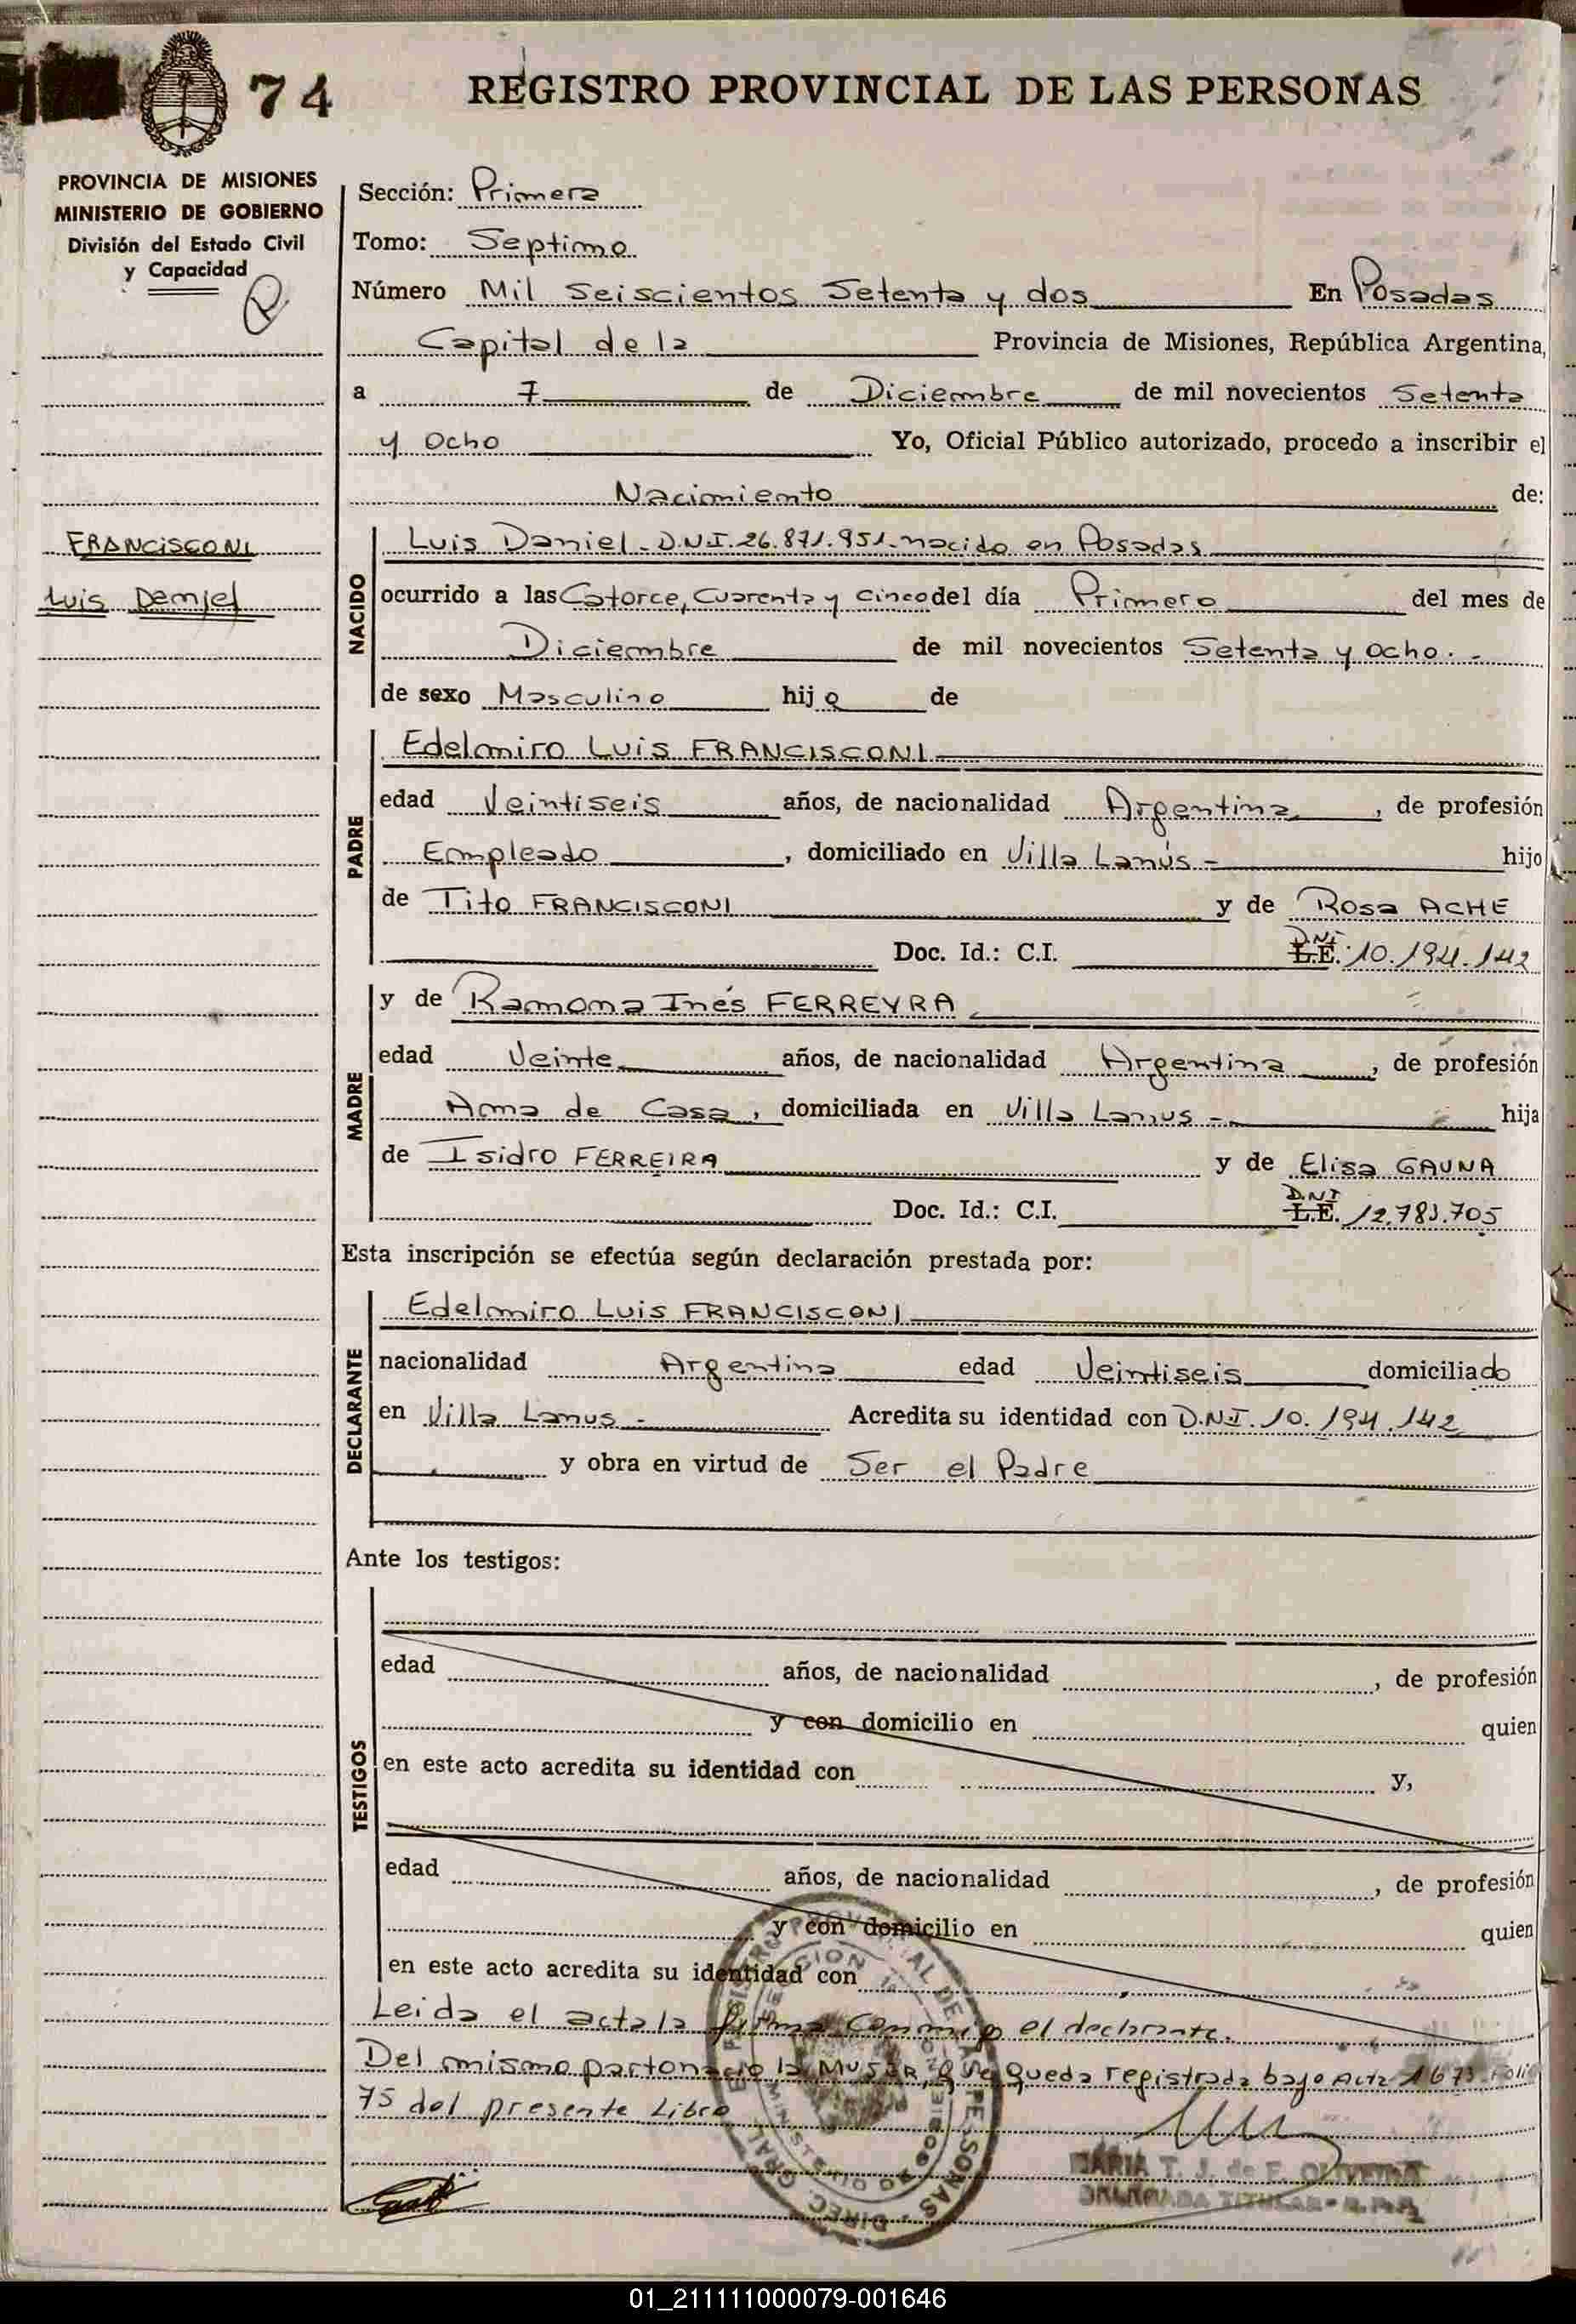 74
REGISTRO PROVINCIAL DE LAS PERSONAS
PROVINCIA DE MISIONES
MINISTERIO DE GOBIERNO
División del Estado Civil
y Capacidad
Sección: Primera
Tomo: Septimo
Número Mil Seiscientos Setenta y dos En Posadas
Capital de la Provincia de Misiones, República Argentina,
a 7 de Diciembre de mil novecientos Setenta
y Ocho Yo, Oficial Público autorizado, procedo a inscribir el
Nacimiento de:
FRANCISCONI
Luis Daniel
NACIDO
Luis Daniel - D.N.I. 26.871.951 - nacido en Posadas
ocurrido a las Catorce, Cuarenta y cinco del día Primero del mes de
Diciembre de mil novecientos Setenta y Ocho. -
de sexo Masculino hijo de
PADRE
Edelmiro Luis FRANCISCONI
edad Veintiseis años, de nacionalidad Argentina, de profesión
Empleado, domiciliado en Villa Lanús - hijo
de Tito FRANCISCONI y de Rosa ACHE
Doc. Id.: C.I. L.E. DNI 10.194.142
MADRE
y de Ramona Inés FERREYRA
edad Veinte años, de nacionalidad Argentina, de profesión
Ama de Casa, domiciliada en Villa Lanus - hija
de Isidro FERREIRA y de Elisa GAUNA
Doc. Id.: C.I. L.E. DNI 12.783.705
Esta inscripción se efectúa según declaración prestada por:
DECLARANTE
Edelmiro Luis FRANCISCONI
nacionalidad Argentina edad Veintiseis domiciliado
en Villa Lanus - Acredita su identidad con D.N.I. 10.194.142
y obra en virtud de Ser el Padre
Ante los testigos:
TESTIGOS
edad años, de nacionalidad , de profesión
y con domicilio en quien
en este acto acredita su identidad con y,
edad años, de nacionalidad , de profesión
y con domicilio en quien
en este acto acredita su identidad con
Leida el acta la firma conmigo el declarante.
Del mismo parto nacio la MUJER, q se queda registrada bajo Acta 1673 Folio
75 del presente Libro
MARIA T. J. de F. OLIVEIRA
DELEGADA TITULAR - R.P.P.
01_211111000079-001646